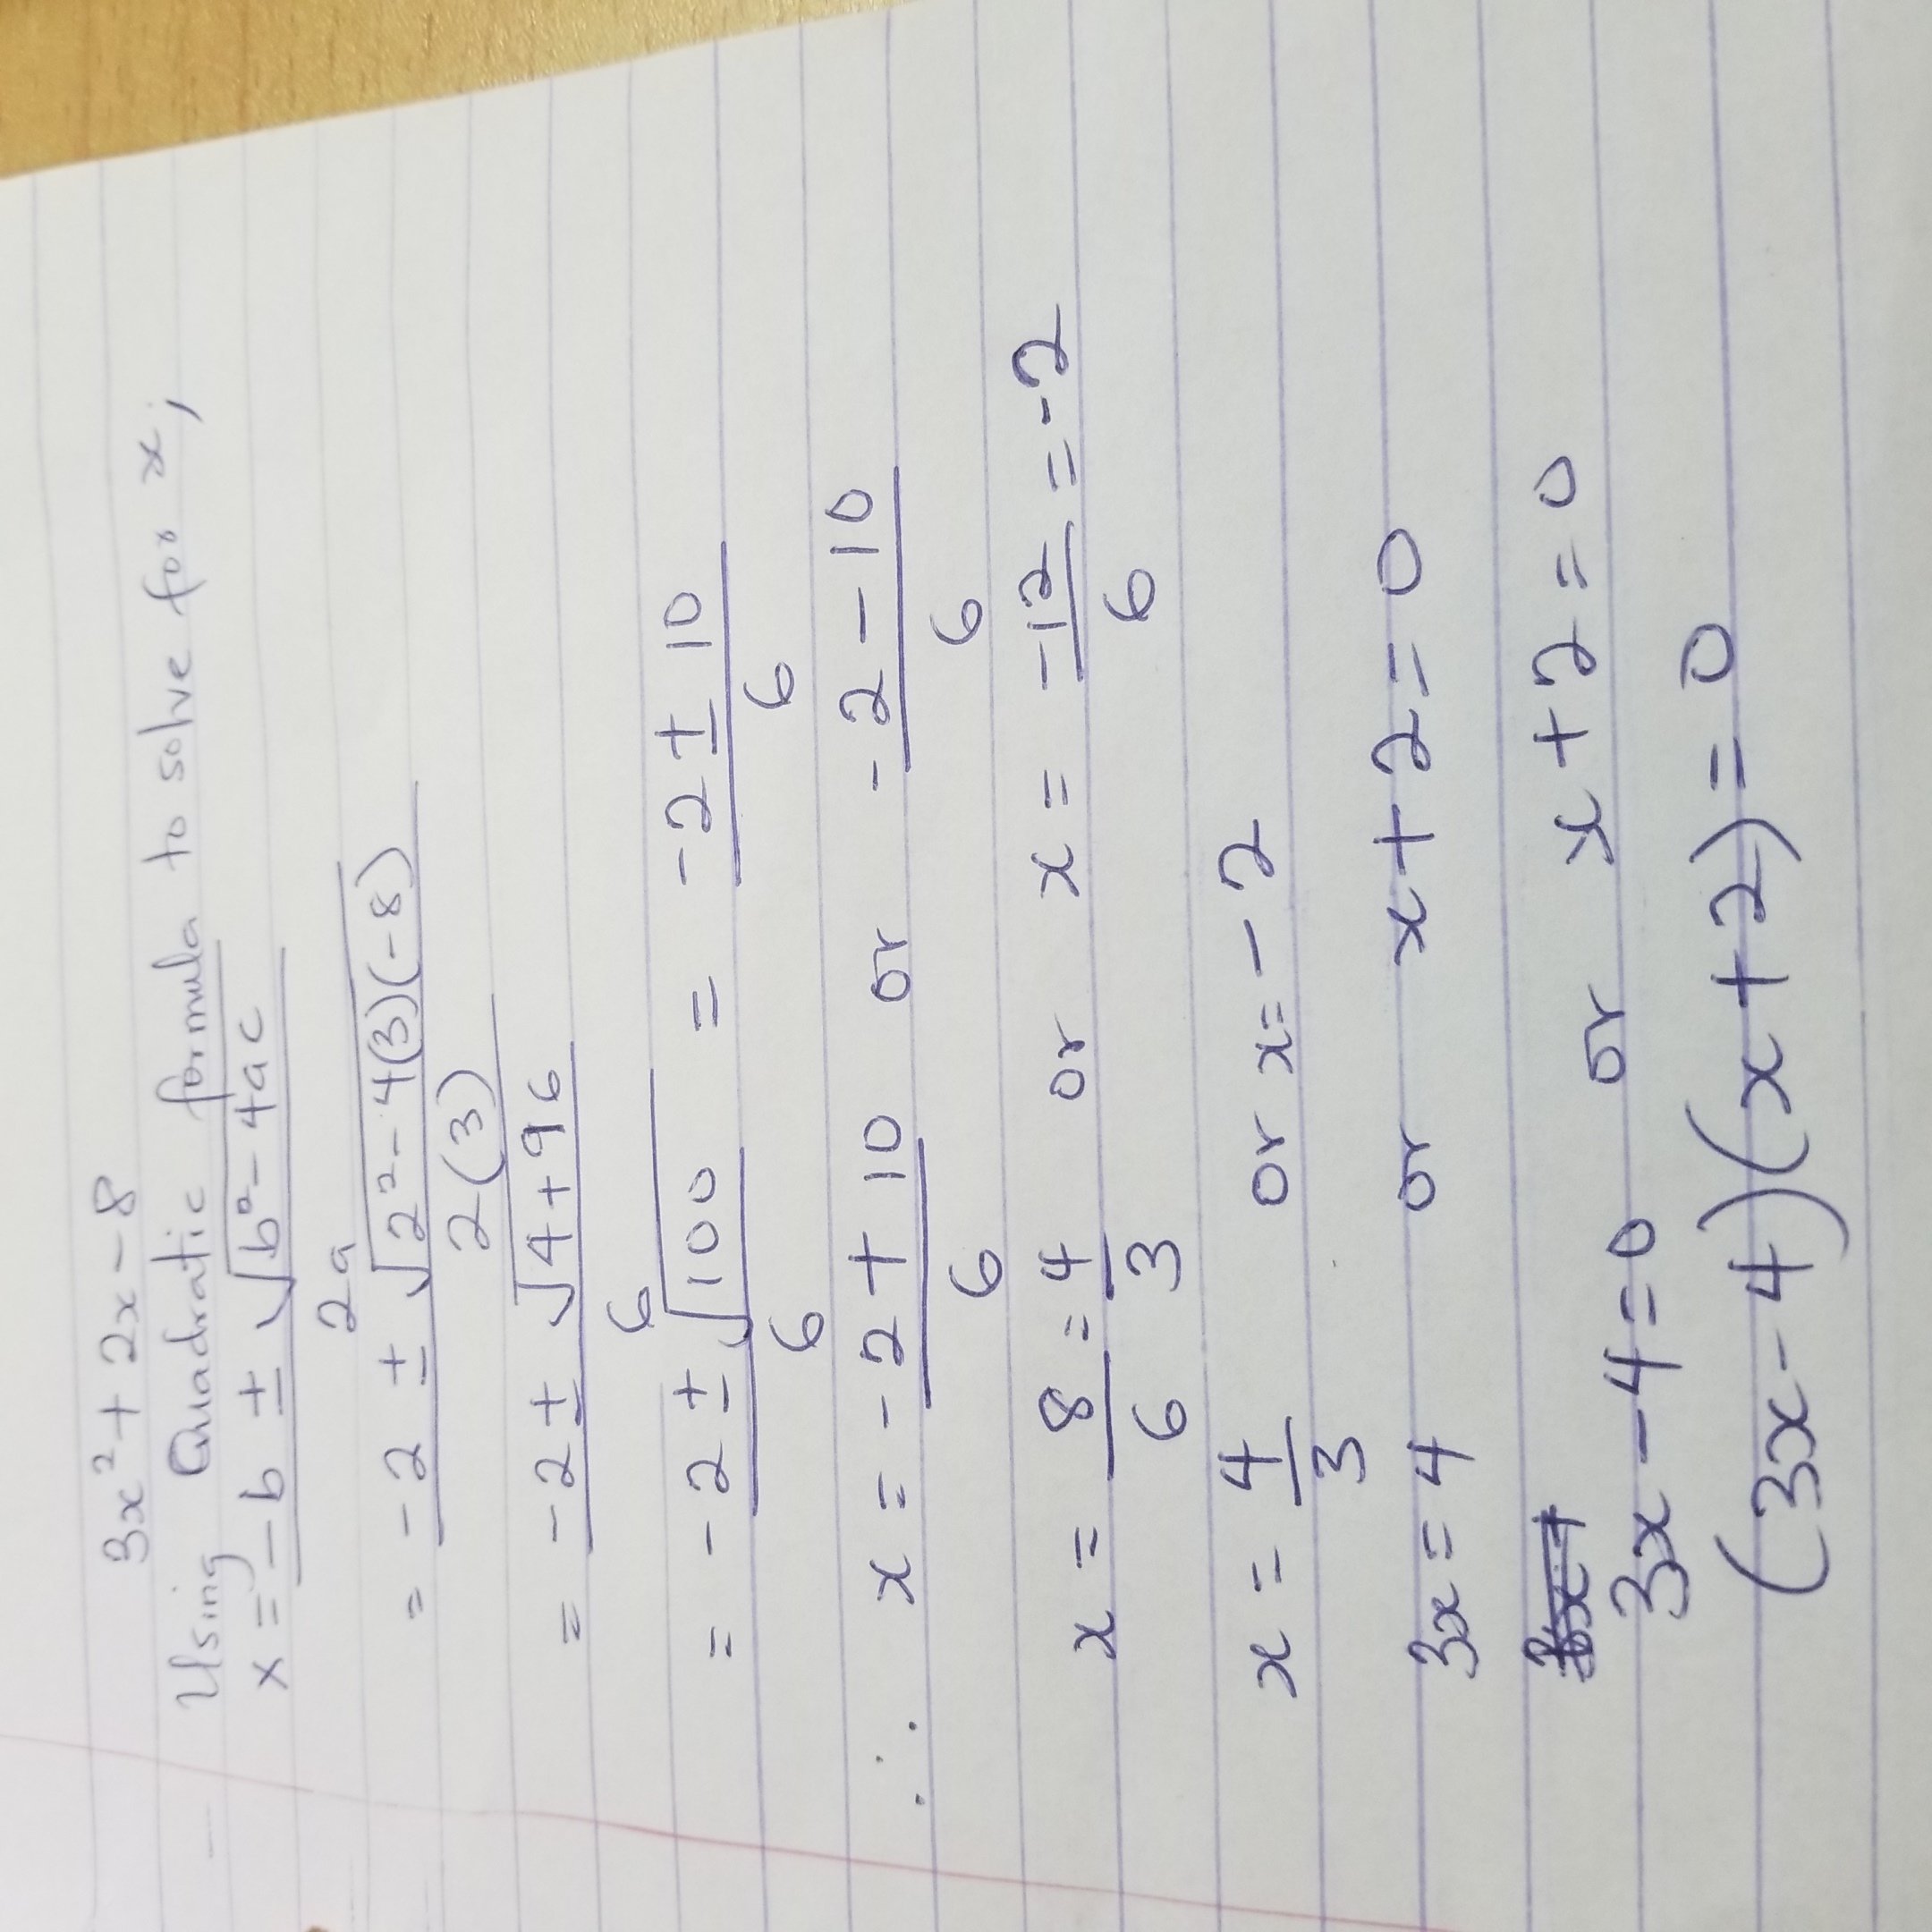 3x² + 2x - 8
Using Quadratic formula to solve for x,
x = -b ± √b² - 4ac
2a
= -2 ± √2² - 4(3)(-8)
2(3)
= -2 ± √4 + 96
6
= -2 ± √100 = -2 ± 10
6 6
∴ x = -2 + 10 or -2 - 10
6 6
x = 8 = 4 or x = -12 = -2
6 3 6
x = 4 or x = -2
3
3x = 4 or x + 2 = 0
3x - 4 = 0 or x + 2 = 0
(3x - 4)(x + 2) = 0